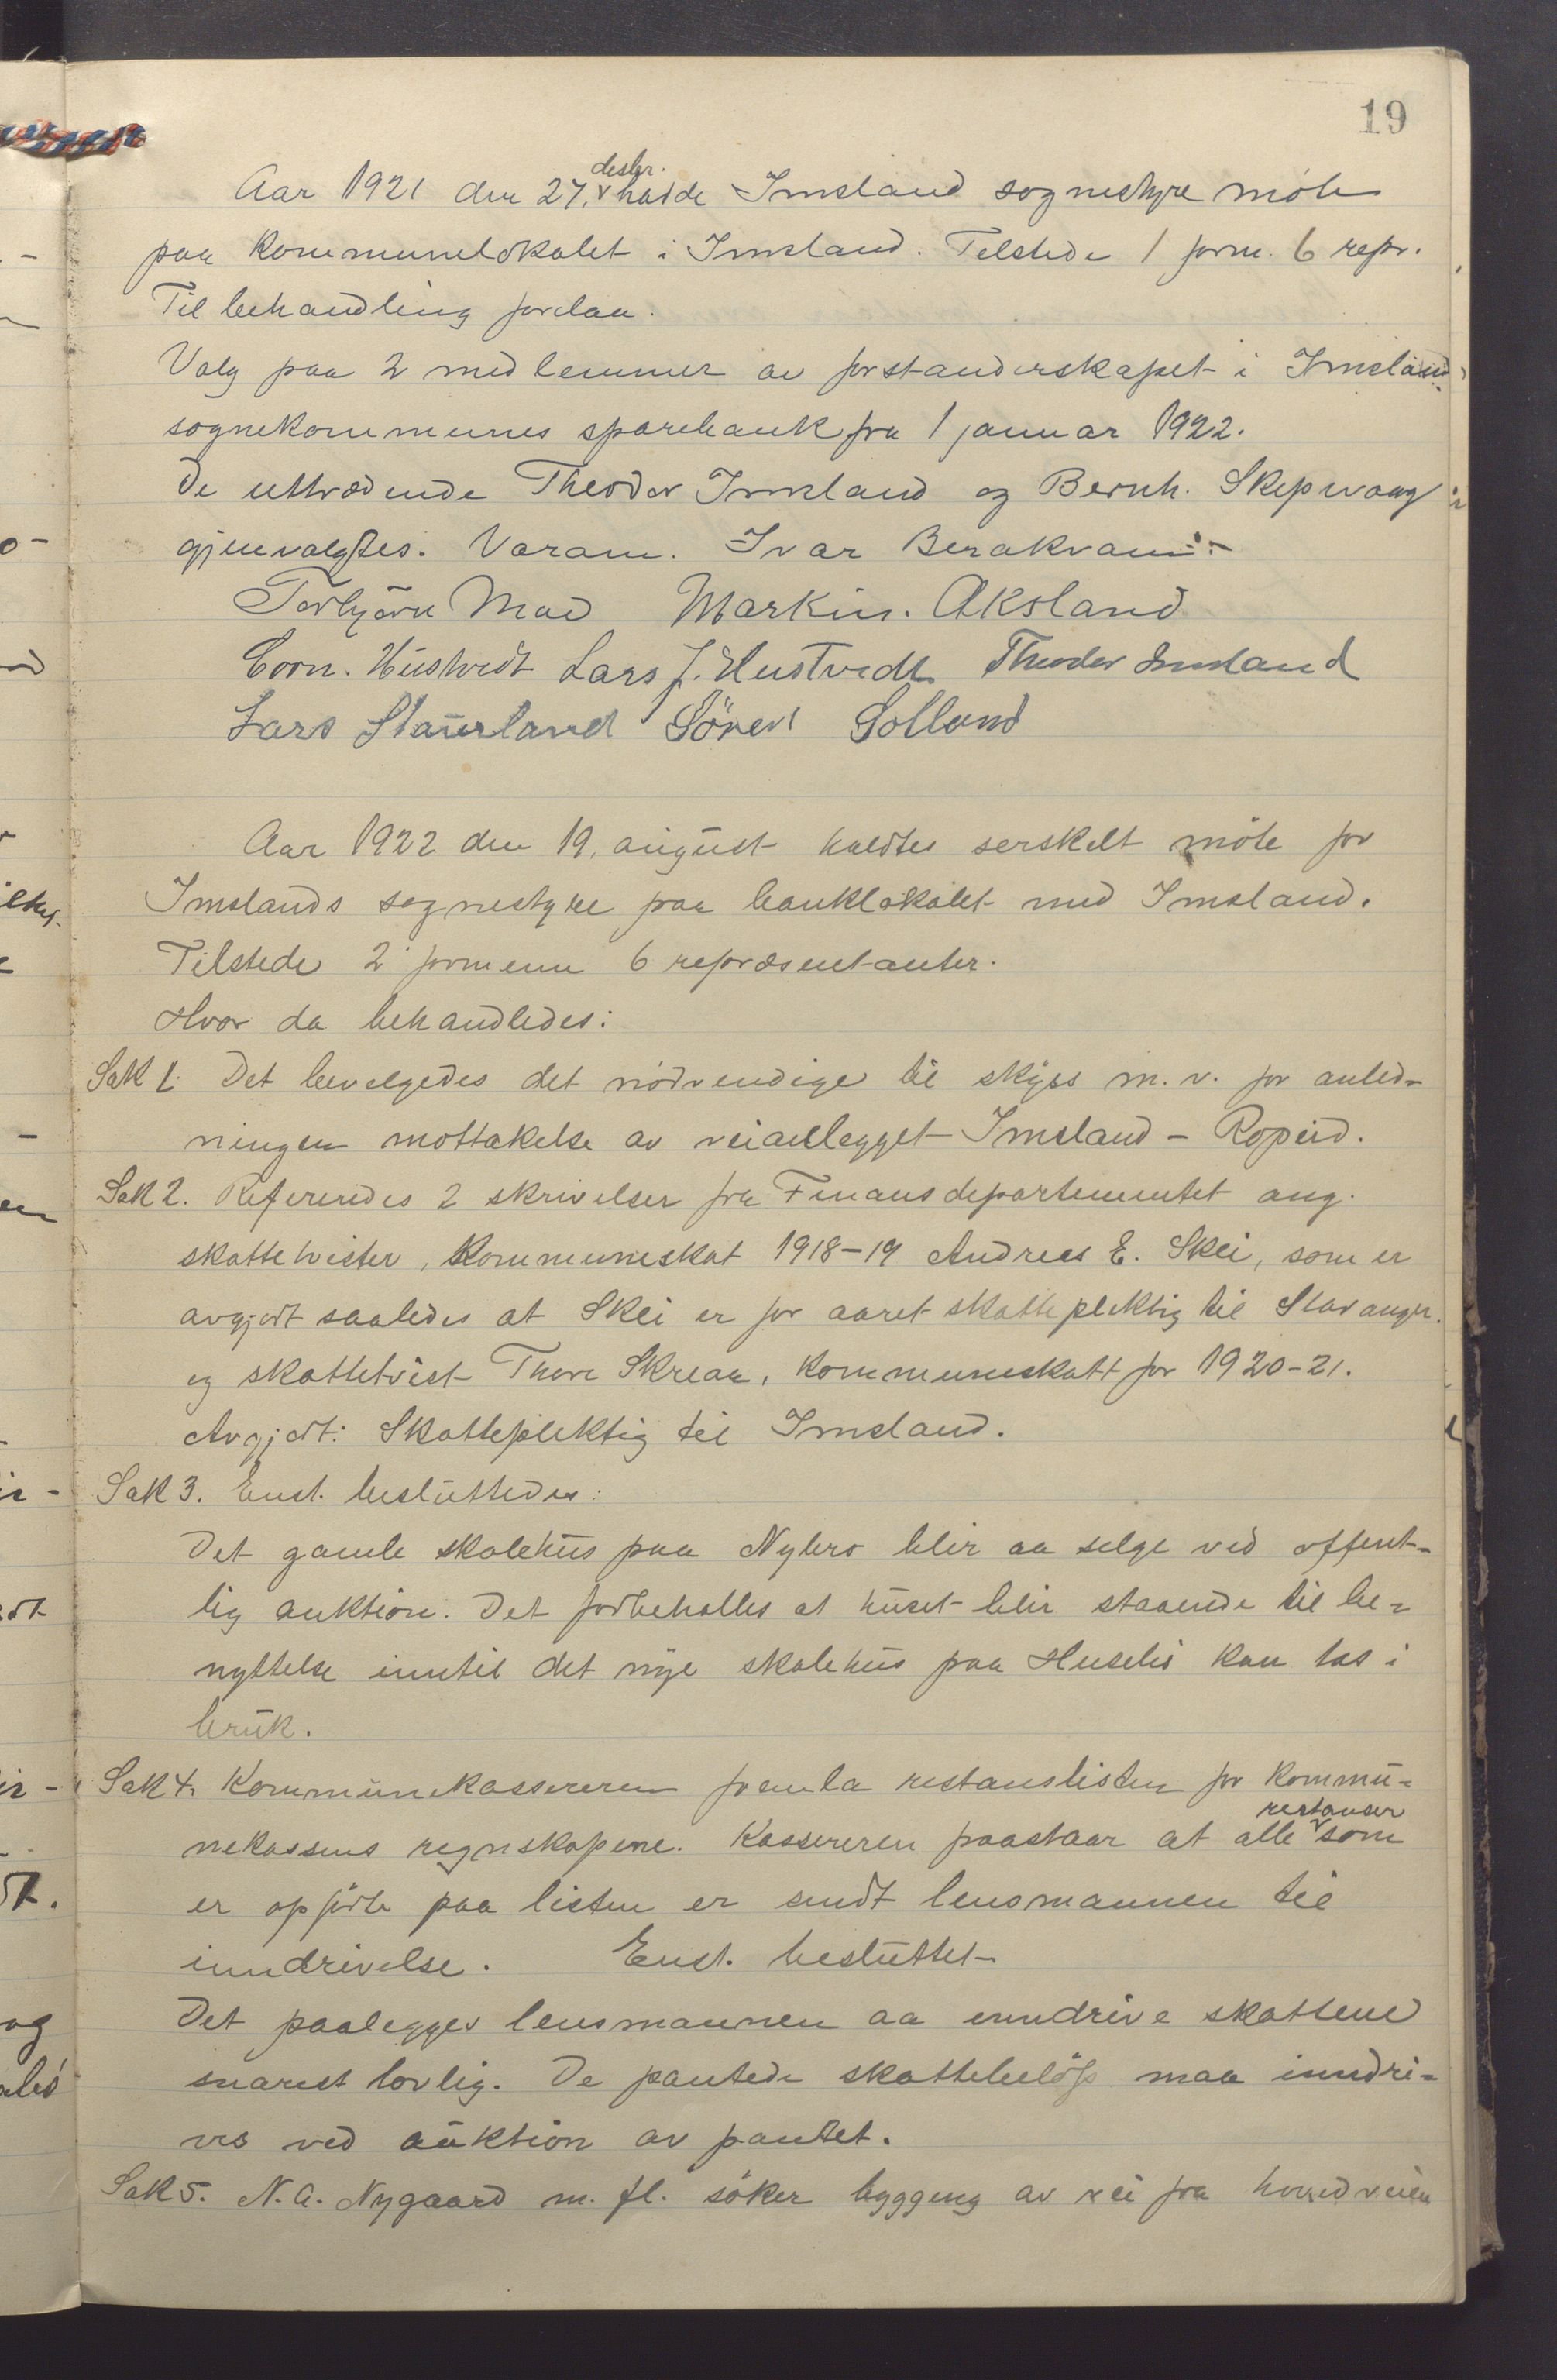 19
Aar 1921 den 27. desbr. havde Imsland sognestyre möte
paa Kommunelokalet i Imsland. Telstede 1 form. 6 repr.
Til behandling forelaa.
Valg paa 2 medlemmer av forstanderskapet i Imsland
sognekommunes sparebank fra 1 januar 1922.
De uttrædende Theodor Imsland og Bernh. Skipevaag
gjenvalgtes. Varam. Ivar Berakvam.
Torbjörn Mæd Markin. Aksland
Corn. Hustvedt Lars J. Hustvedt Theodor Imsland
Lars Staurland Sören Solland
Aar 1922 den 19. august holdtes serskelt möte for
Imslands sognestyre paa banklokalet med Imsland.
Tilstede 2 formenn 6 repræsentanter.
Hvor da behandledes:
Sak 1. Det bevelgedes det nödvendige til skyss m.v. for anled-
ningen mottakelse av veianlegget Imsland - Ropeid.
Sak 2. Refereredes 2 skrivelser fra Finansdepartementet ang.
skattetvister, Kommuneskat 1918-19 Andreas E. Skei, som er
avgjort saaledes at Skei er for aaret skattepliktig til Stavanger.
og skattetvist Thore Skreaa, Kommuneskatt for 1920-21.
Avgjort: Skattepliktig til Imsland.
Sak 3. Enst. besluttedes:
Det gamle skolehus paa Nybro blir aa selge ved offent-
lig auktion. Det forbeholdes at huset blir staaende til be-
nyttelse inntil det nye skolehus paa Huseli kan tas i
bruk.
Sak 4. Kommunekassereren fremla restanslisten for Kommu-
nekassens regnskapene. Kassereren paastaar at alle restanser som
er opförte paa listen er sendt lensmannen til
inndrivelse. Enst. besluttet
Det paalegges lensmannen aa inndrive skattene
snarest lovlig. De pantede skattebelöp maa inndri-
ves ved auktion av pantet.
Sak 5. N. A. Nygaard m. fl. söker byggeng av vei fra hovedveien